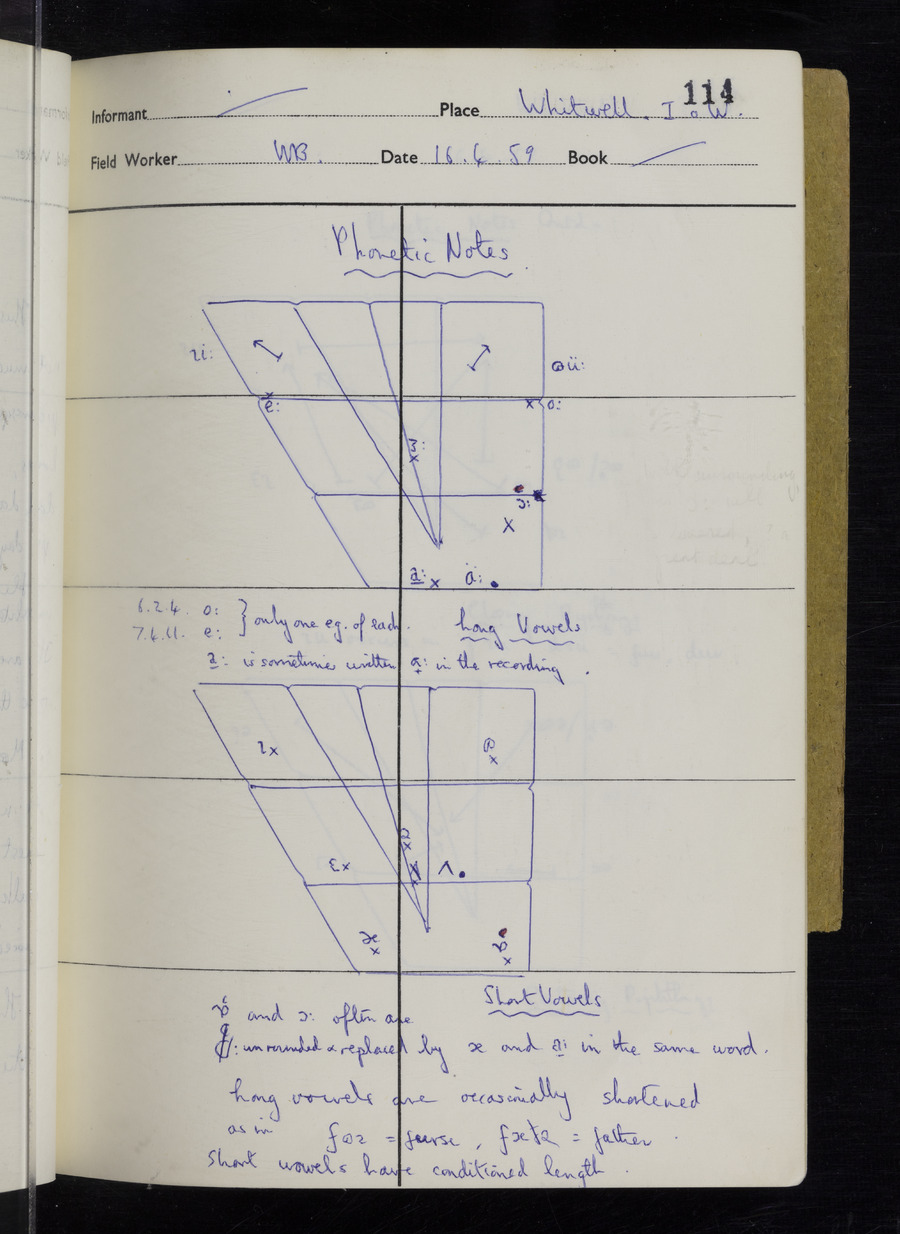 114
Informant Place Whitwell. I.o.W.
Field Worker WB. Date 16.4.59 Book
Phonetic Notes
ɪi: ɷü:
e: o:
ɜ:
ɔ:
a: ɑ̈:
6.2.4. o: } only one eg. of each.
7.4.11. e:
Long Vowels
a: is sometimes written a: in the recording.
ɪ ɷ
ə
ɛ ʌ
æ ɒ
Short Vowels
ɒ and ɔ: often are
unrounded & replaced by æ and a: in the same word.
Long vowels are occasionally shortened
as in fɷz = furse, fæðə = father.
Short vowels have conditioned length.